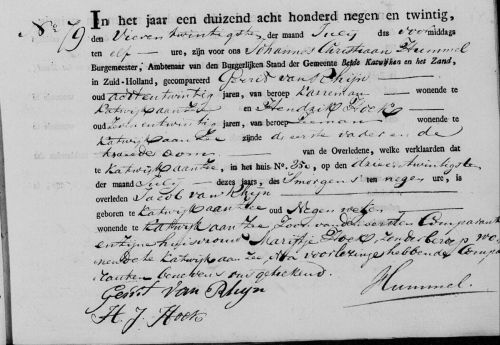 No. 79
In het jaar een duizend acht honderd negen en twintig,
den Vierentwintigste der maand July des voormiddags
ten elf ure, zijn voor ons Johannes Christiaan Hummel
Burgemeester, Ambtenaar van den Burgerlijken Stand der Gemeente Beide Katwijken en het Zand,
in Zuid-Holland, gecompareerd Gerrit van Rhijn
oud achtentwintig jaren, van beroep wonende te
Katwijk aan Zee en Hendrik Hoek
oud jaren, van beroep Zeeman wonende te
Katwijk aan Zee zijnde de eerste vader en de
tweede Oom van de Overledene, welke verklaarden dat
te Katwijk aan Zee, in het huis No. 350, op den drieentwintigste
der maand July dezes jaars, des Smorgens te negen ure, is
overleden Jacob van Rhijn
geboren te Katwijk aan Zee oud Negen weken
wonende te Katwijk aan Zee Zoon van den eersten Comparant
en zijne huisvrouw Marijtje Hoek zonder beroep wo=
nende te Katwijk aan Zee, Na voorlezinge hebbende Compa
ranten benevens ons getekend.
Gerrit van Rhijn
H. J. Hoek
Hummel.